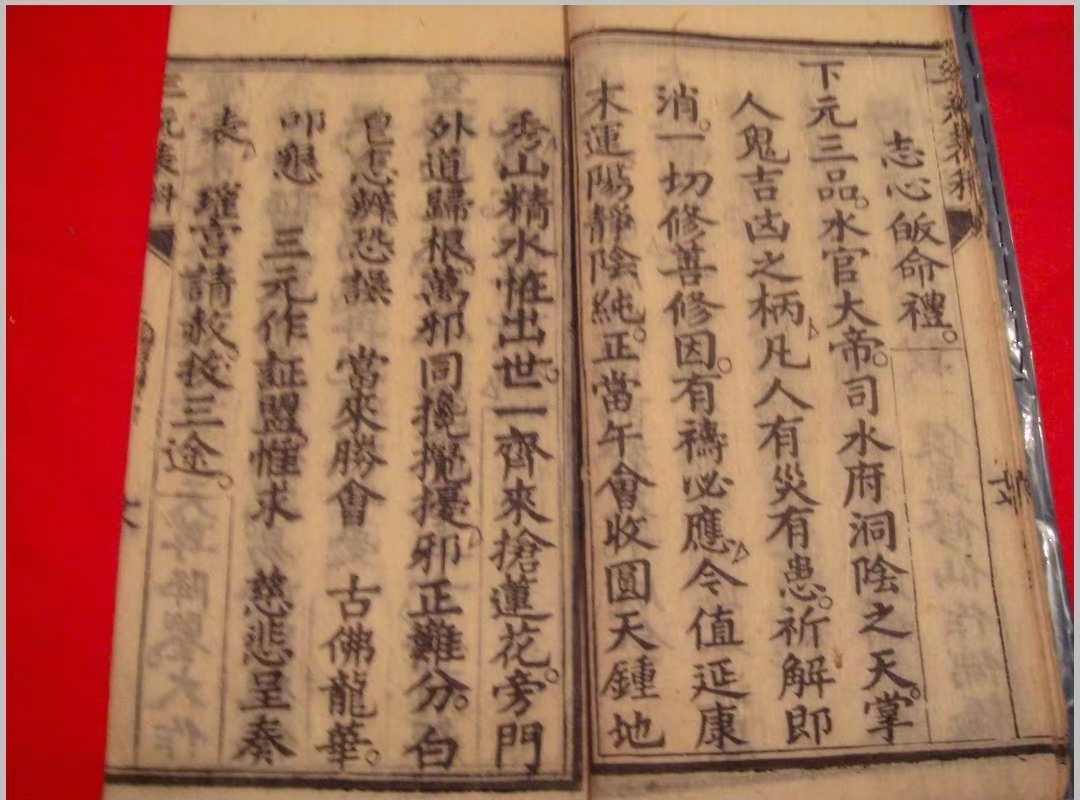 志心皈命禮。
下元三品。水官大帝。司水府洞陰之天。掌
人鬼吉凶之柄凡人有災有患。祈解即
消。一切修善修因。有禱必應令值延康
末運陽靜陰純。正當午會收圓天鍾地
秀山精水恠出世。一齊來搶蓮花。旁門
外道歸根。萬邪同攪擾邪正難分。白
皂怎辦恐誤 當來勝會 古佛龍華。
叩懇 三元作証盟惟求 慈悲呈奏
表 宣請救拔三途。